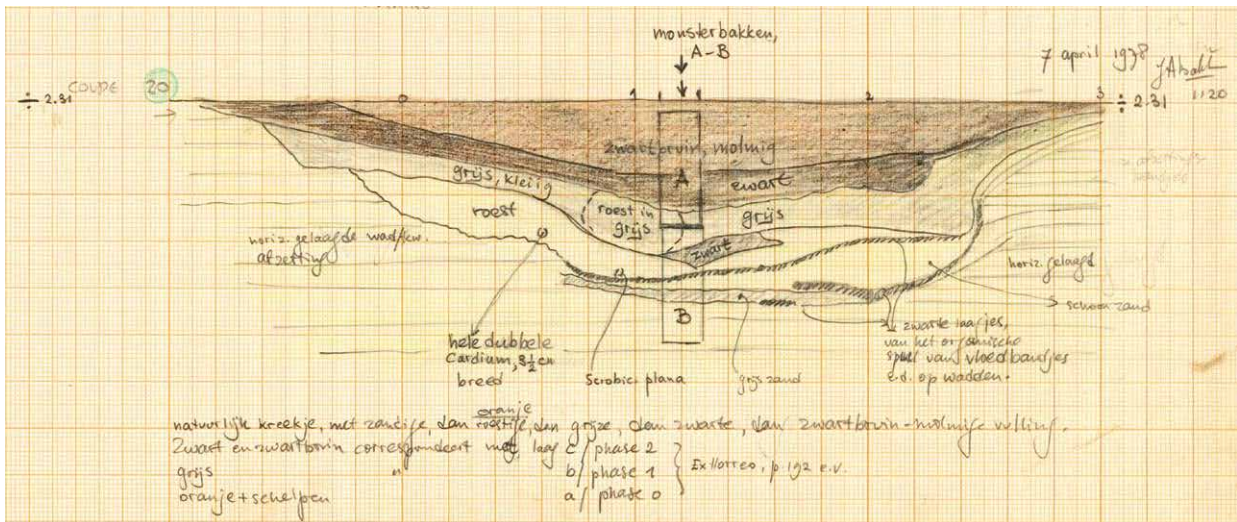 monsterbakken,
A-B
7 april 1978
1:20
COUPE 20
÷ 2.31
0
1
2
3
÷ 2.31
zwartbruin, molmig
A
zwart
grijs, kleiig
roest
roest in
grijs
grijs
zwart
horiz. gelaagde wadzw.
afzetting
horiz. gelaagd
schoon zand
B
hele dubbele
Cardium, 3½ cm
breed
Scrobic. plana
grijs zand
zwarte laagjes,
van het organische
spul van vloedbandjes
e.d. op wadden.
oranje
natuurlijk kreekje, met zandige, dan roestige, dan grijze, dan zwarte, dan zwartbruin-molmige vulling.
Zwart en zwartbruin correspondeert met laag c/phase 2
grijs " b/phase 1
oranje + schelpen a/phase 0
Ex Horreo, p 192 e.v.